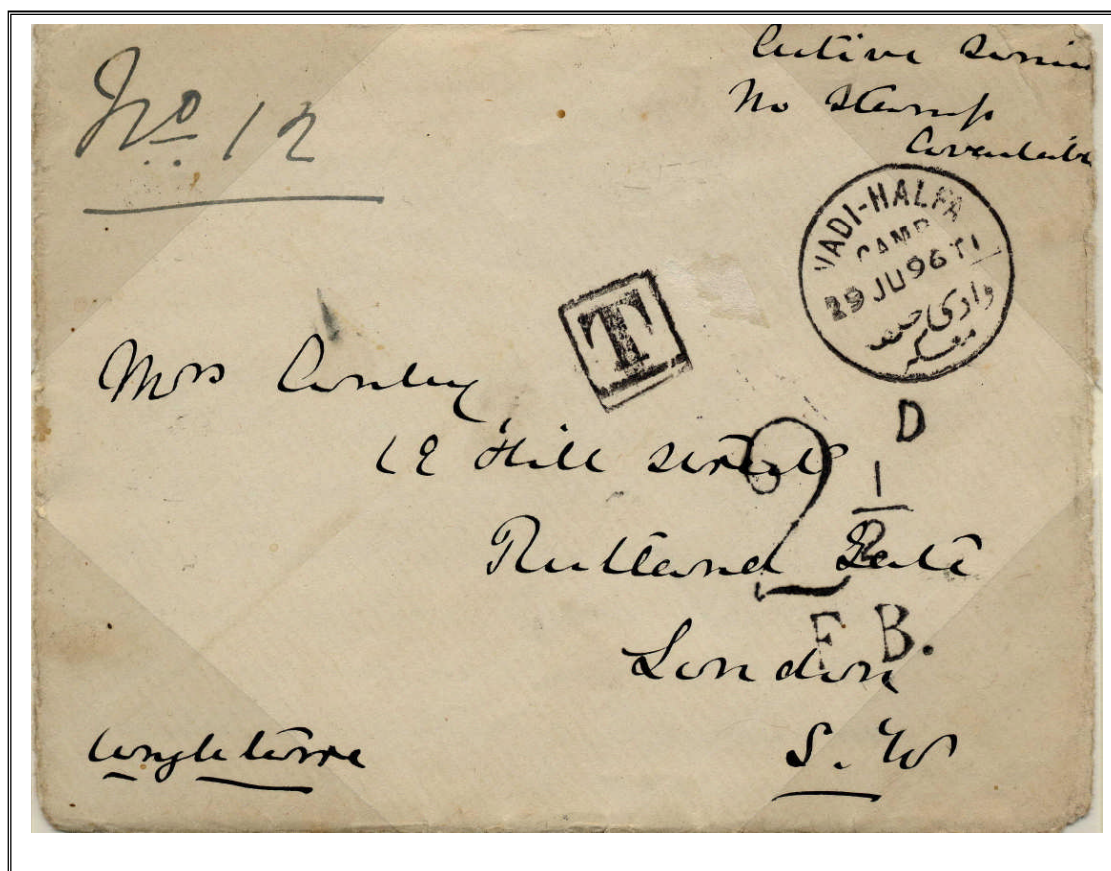 No 12
Active Servi
No Stamps
Availab
WADI-HALFA
CAMP
29 JU 96 T1
وادى حلفه
معسكر
T
Mrs
12 Hill Street
Rutland Gate
London
S. W
Angleterre
2 1/2 D
F.B.